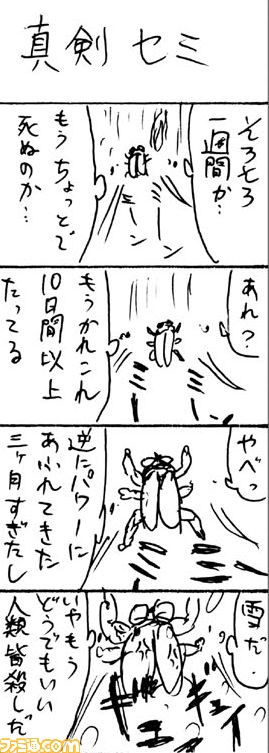 真剣セミ
そろそろ
一週間か…
もうちょっとで
死ぬのか…
ミーンミーン
あれ?
もうかれこれ
10日間以上
たってる
やべっ
逆にパワーに
あふれてきた
三ヶ月すぎたし
雪だ…
いやもう
どうでもいい
人類皆殺しだ
ファミ通.com